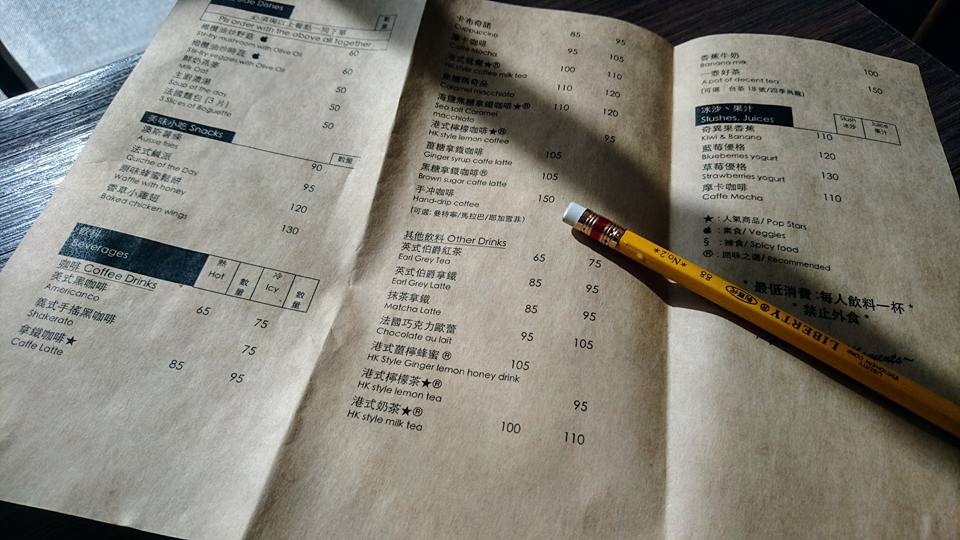 Side Dishes
必須與以上餐點一同下單
Pls order with the above all together
數量
橄欖油炒野菇 60
Stir-fry mushroom with Olive Oil
橄欖油炒時蔬 60
Stir-fry veggies with Olive Oil
鮮奶燕麥 50
Milk Oat
主廚濃湯 50
Soup of the day
法國麵包 (3 片) 50
3 Slices of Baguette
美味小吃 Snacks
數量
澳斯薯條 90
Aussie fries
法式鹹派 95
Quiche of the Day
原味蜂蜜鬆餅 120
Waffle with honey
香草小雞翅 130
Baked chicken wings
飲料
Beverages
熱
Hot
數量
冷
Icy
數量
咖啡 Coffee Drinks
美式黑咖啡 65 75
Americanco
義式手搖黑咖啡 75
Shakerato
拿鐵咖啡★ 85 95
Caffe Latte
卡布奇諾 85 95
Cappuccino
摩卡咖啡 95 105
Caffe Mocha
港式鴛鴦★® 100 110
HK style coffee milk tea
焦糖瑪奇朵 110 120
Caramel macchiato
海鹽焦糖拿鐵咖啡★® 110 120
Sea salt Caramel
macchiato
港式檸檬咖啡★® 95
HK style lemon coffee
薑糖拿鐵咖啡® 105
Ginger syrup caffe latte
黑糖拿鐵咖啡® 105
Brown sugar caffe latte
手冲咖啡 150
Hand-drip coffee
(可選: 曼特寧/馬拉巴/耶加雪菲)
其他飲料 Other Drinks
英式伯爵紅茶 65 75
Earl Grey Tea
英式伯爵拿鐵 85 95
Earl Grey Latte
抹茶拿鐵 85 95
Matcha Latte
法國巧克力歐蕾 95 105
Chocolate au lait
港式薑檸蜂蜜 ® 105
HK Style Ginger lemon honey drink
港式檸檬茶★® 95
HK style lemon tea
港式奶茶★® 100 110
HK style milk tea
香蕉牛奶 100
Banana milk
一壺好茶 150
A pot of decent tea
(可選 : 台茶 18 號/四季烏龍)
冰沙、果汁
Slushes, Juices
Slush
冰沙
Juice
果汁
奇異果香蕉 110
Kiwi & Banana
藍莓優格 120
Blueberries yogurt
草莓優格 130
Strawberries yogurt
摩卡咖啡 110
Caffe Mocha
★ : 人氣商品/ Pop Stars
: 素食/ Veggies
§ : 辣食/ Spicy food
® : 回味之選/ Recommended
* 最低消費:每人飲料一杯 *
* 禁止外食 *
*No.2* 88
LIBERTY
LIBERTY STATIONERY CORP.